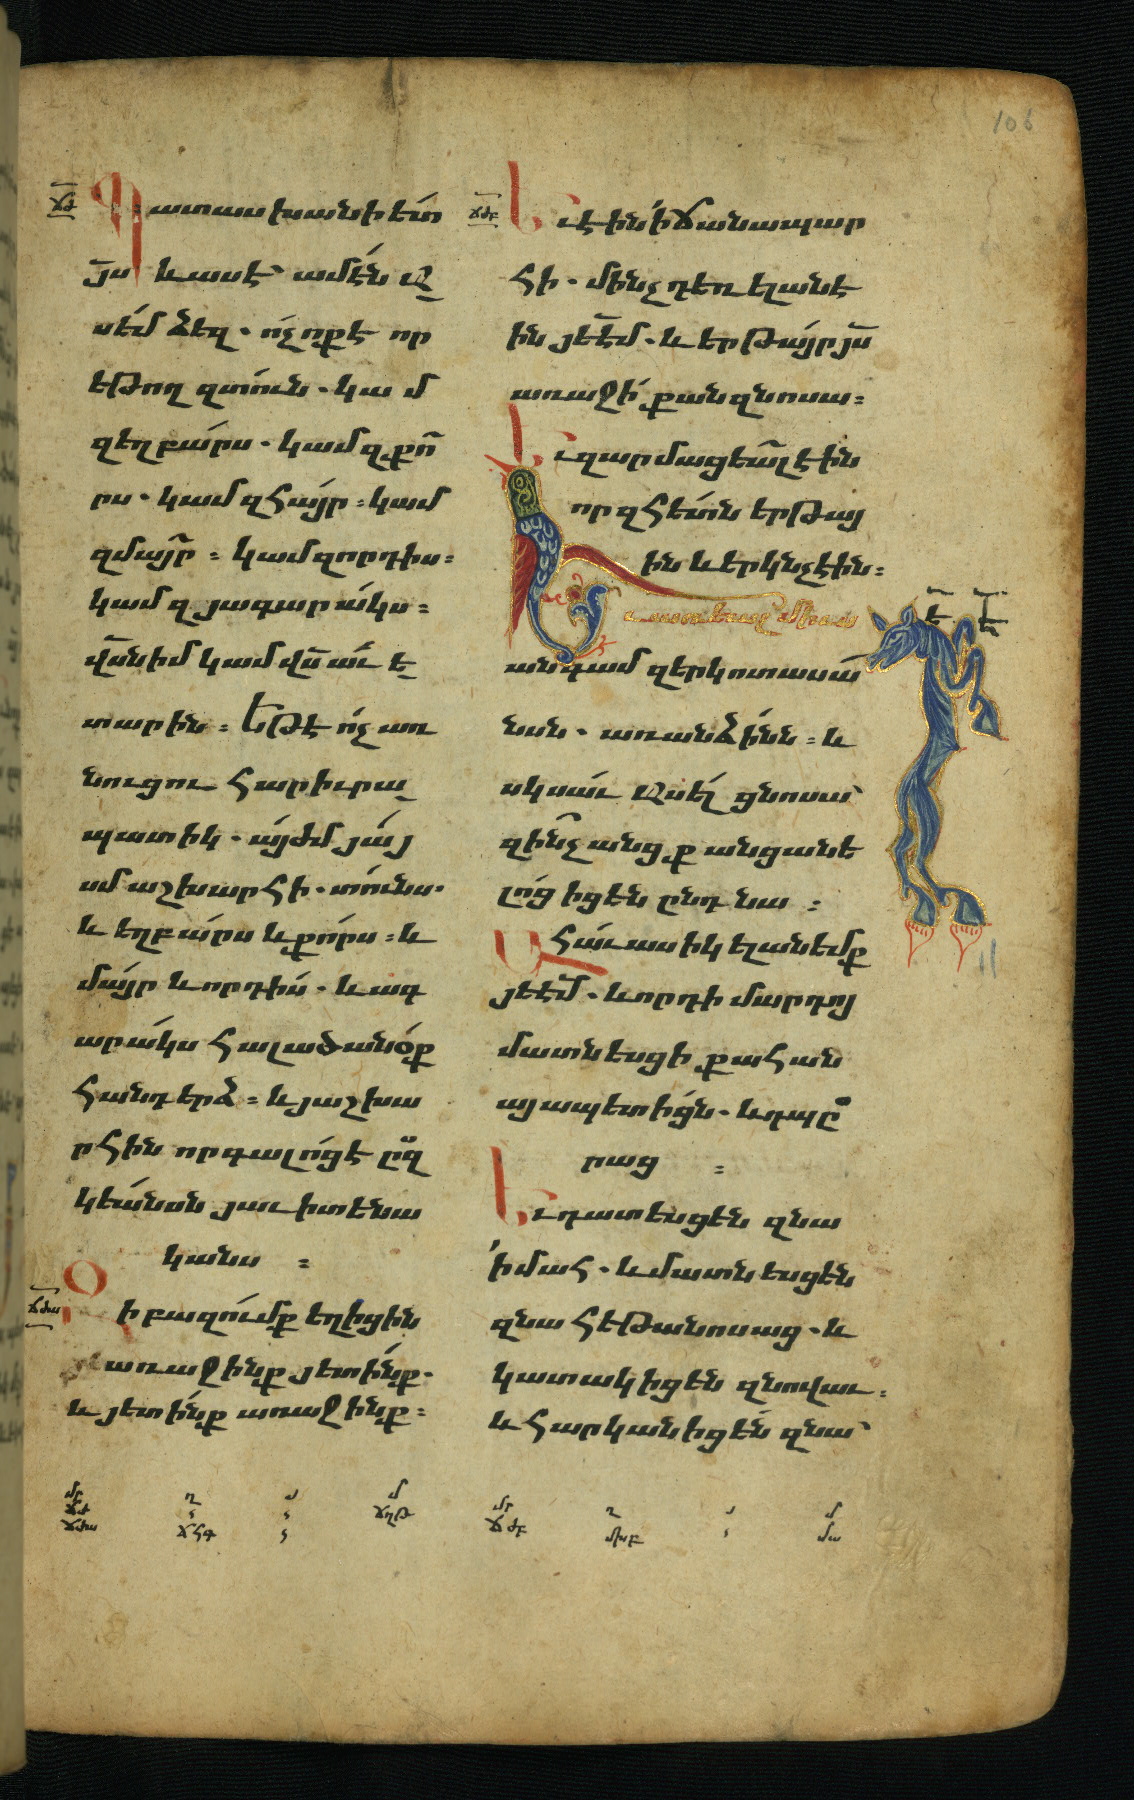 106
ՃԺ
Պատասխանի ետ
յս և ասէ՝ ամէն ա
սեմ ձեզ. ոչ ոք է որ
եթող զտուն. կամ
զեղբարս. կամ զքո
րս. կամ զհայր. կամ
զմայր. կամ զորդիս.
կամ զյագարակս.
վսն իմ կամ վս աւե
տարին. Եթէ ոչ առ
նուցու հարիւրա
պատիկ. այժմ յայ
սմ աշխարհի. տունս.
և եղբարս և քորս. և
մայր և որդիս. և ագ
արակս հալածանօք
հանդերձ. և յաշխա
րհին որ գալոց է ըզ
կեանսն յաւիտենա
կանս :
ՃԺԱ
Բազումք եղիցին
առաջինք յետինք.
և յետինք առաջինք.
ՃԺԲ
Եւ էին ի ճանապար
հի. մինչդեռ ելանէ
ին յեեմ. և երթայր յս
առաջի քան զնոսա.
Եւ զարմացեալ էին
որ զհետն երթայ
ին և երկնչէին.
Եւ առեալ միւս
անգամ զերկոտասա
նսն. առանձինն. և
սկսաւ ասել ցնոսա՝
զինչ անցք անցանե
լոց իցեն ընդ նա :
Ահաւասիկ ելանեմք
յեեմ. և որդի մարդոյ
մատնեսցի քահան
այապետիցն. և դպը
րաց :
Եւ դատեսցեն զնա
ի մահ. և մատնեսցեն
զնա հեթանոսաց. և
կատակիցեն զնովաւ.
և հարկանիցեն զնա՝